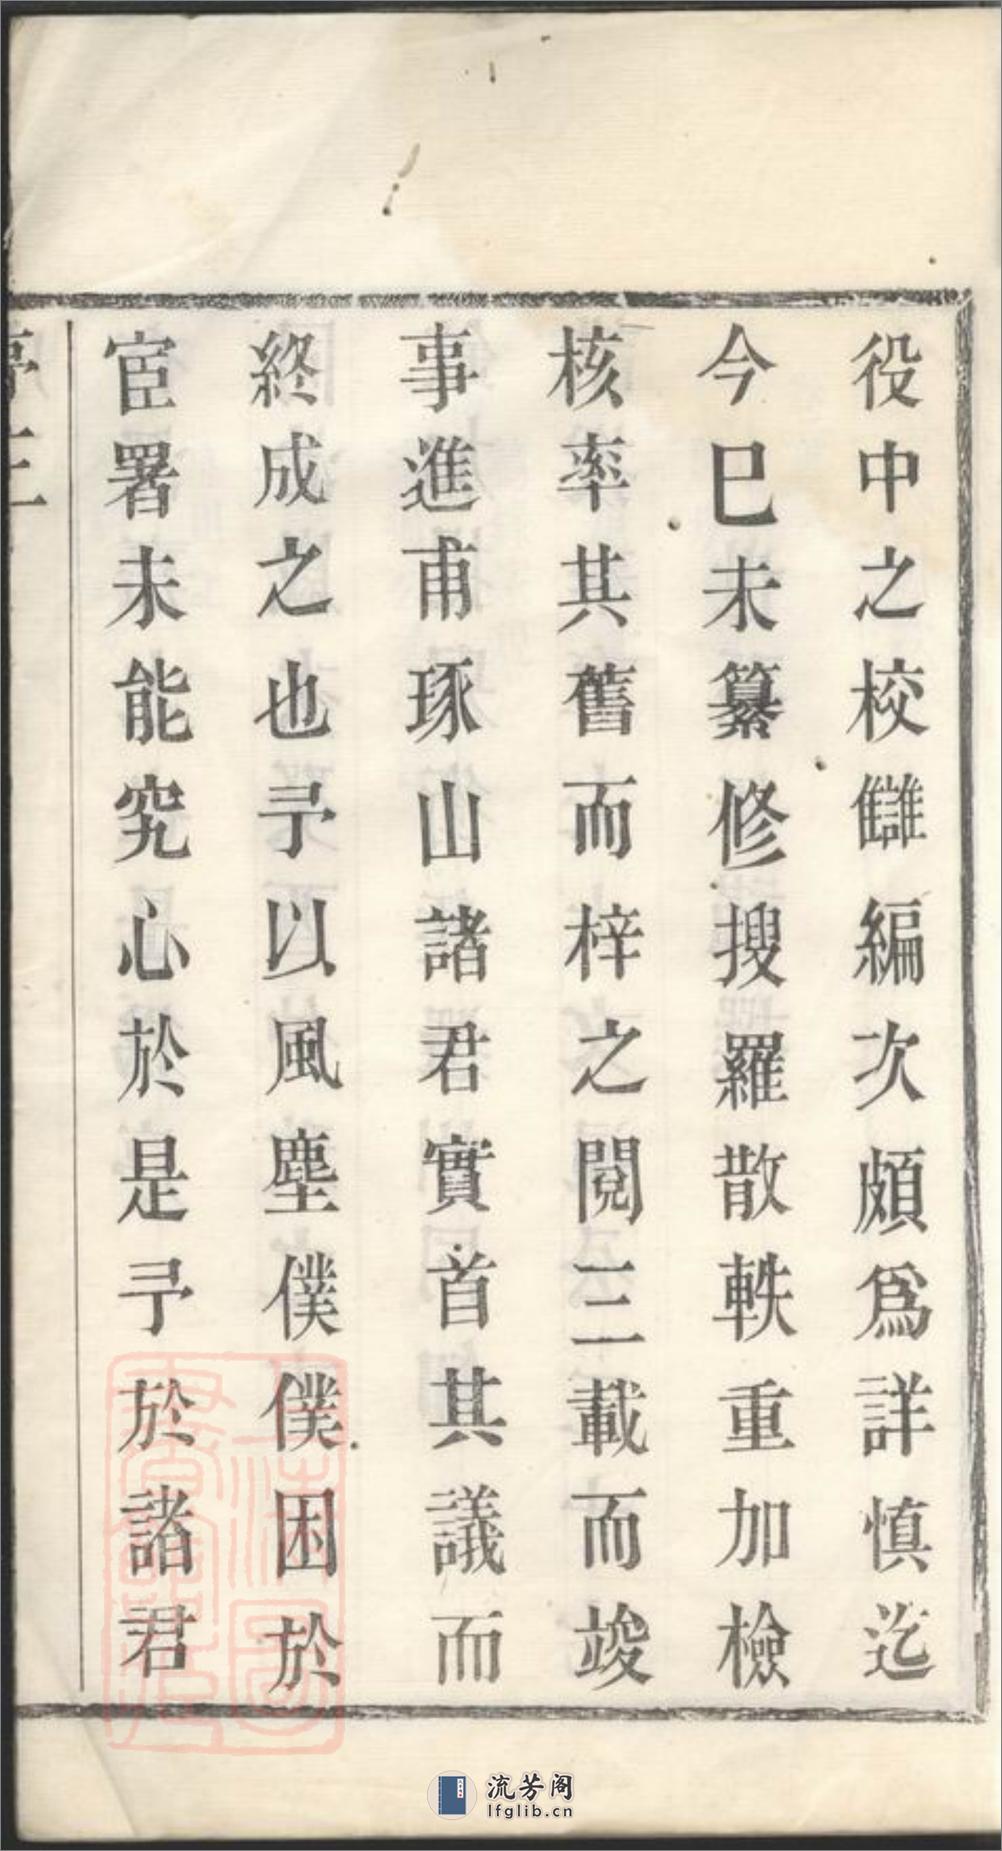 役中之校讎編次頗爲詳慎迄
今巳未纂修搜羅散軼重加檢
核率其舊而梓之閱三載而竣
事進甫琢山諸君實首其議而
終成之也予以風塵僕僕困於
宦署未能究心於是予於諸君
流芳阁
lfglib.cn